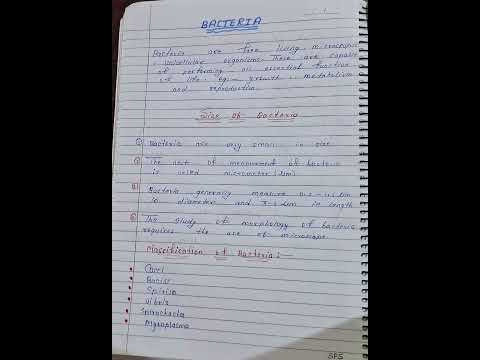 BACTERIA
Bacteria are free living, microscopic
, unicellular organisms. These are capable
of performing all essential function
of life eg - growth, metabolism
and reproduction.
Size of Bacteria
① Bacteria are very small in size
② The unit of measurement of bacteria
is called micrometer (um)
③ Bacteria generally measure
in diameter and 3-5 um in length
④ The study of morphology of bacteria
requires the use of microscope
Classification of Bacteria :-
Cocci
Bacilli
Spirilla
Vibrio
Spirochaeta
Mycoplasma
SPS